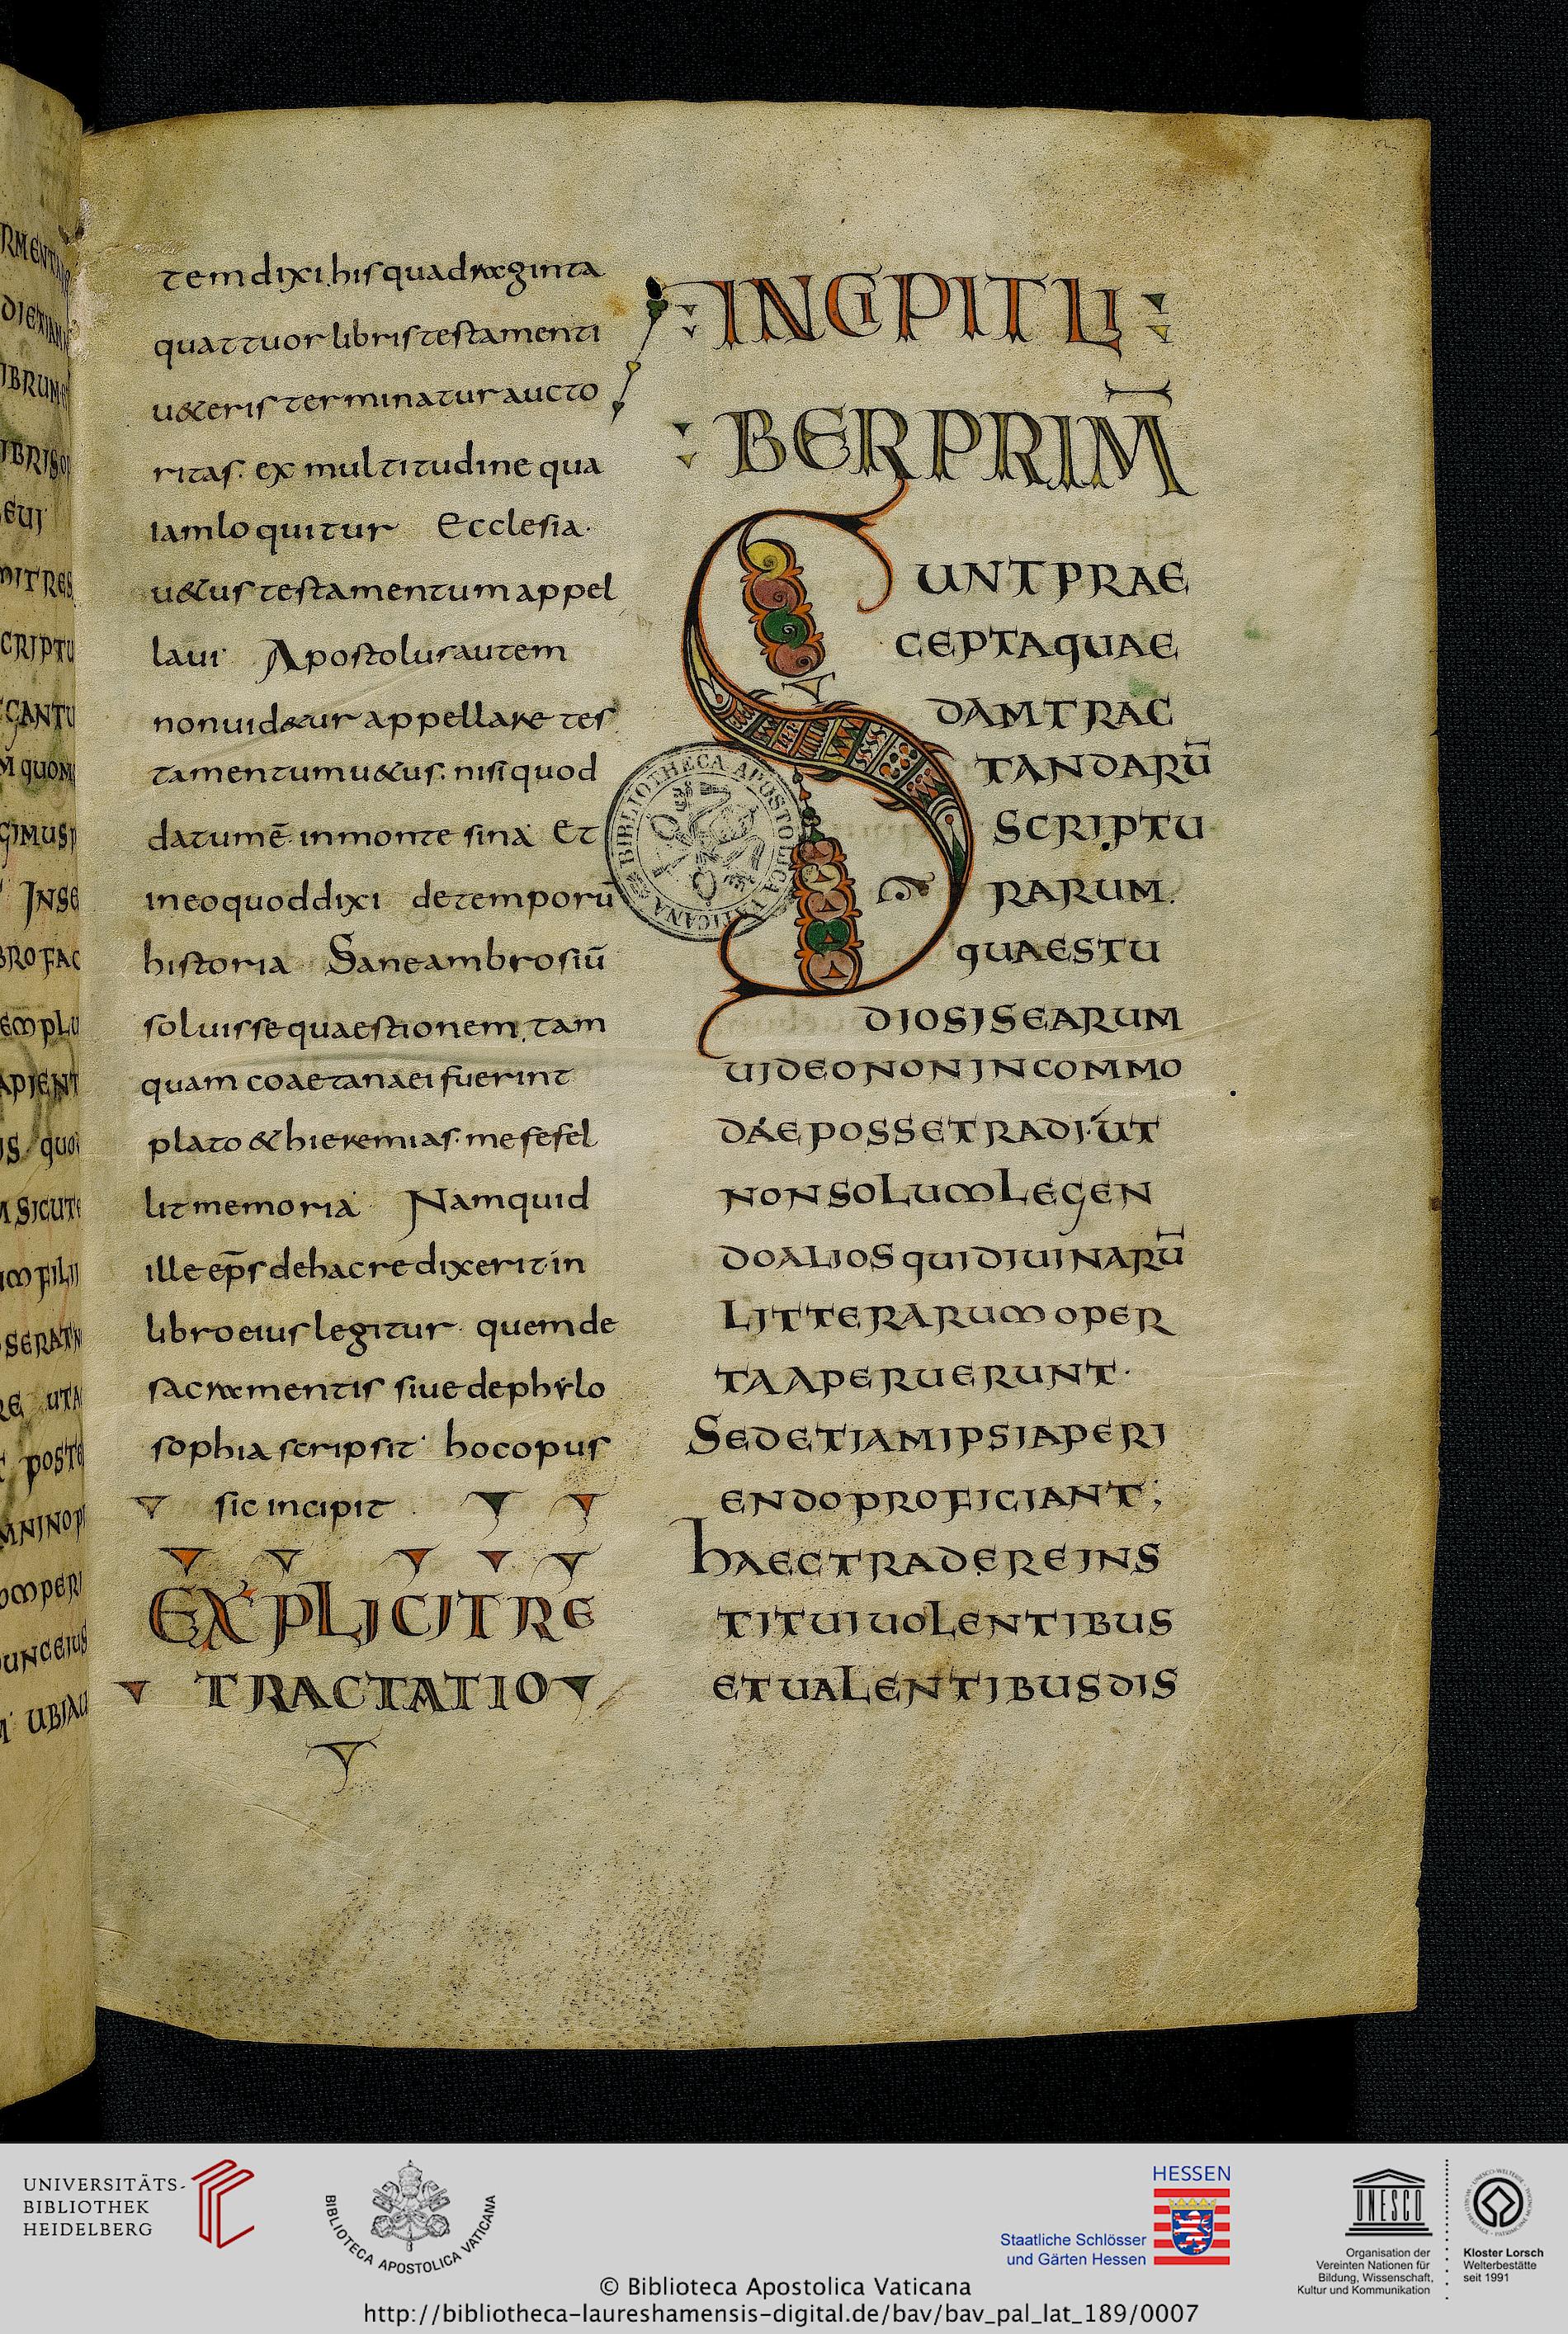 temdixi. hisquadraginta
quattuor libris testamenti
u&eris terminatur aucto
ritas. ex multitudine qua
iamloquitur Ecclesia.
u&us testamentum appel
laui Apostolus autem
nonuid&ur appellare tes
tamentum u&us. nisi quod
datumē. inmonte sina Et
ineoquoddixi detemporū
historia Saneambrosiū
soluisse quaestionem, tam
quam coaetanaei fuerint
plato & hieremias. mefefel
lit memoria Namquid
ille ep̄s dehacredixerit in
libroeius legitur quemde
sacramentis siue dephylo
sophia scripsit hocopus
sic incipit
EXPLICIT RE
TRACTATIO
INCIPIT LI
BER PRIM̄
SUNT PRAE
CEPTA QUAE
DAM TRAC
TANDARŪ
SCRIPTU
RARUM.
QUAE STU
DIOSIS EARUM
UIDEO NON INCOMMO
DAE POSSE TRADI. UT
NON SOLUM LEGEN
DO ALIOS QUI DIUINARŪ
LITTERARUM OPER
TA APERUERUNT.
SED ETIAM IPSI APERI
ENDO PROFICIANT;
HAEC TRADERE INS
TITUI UOLENTIBUS
ET UALENTIBUS DIS
BIBLIOTHECA APOSTOLICA VATICANA
UNIVERSITÄTS-
BIBLIOTHEK
HEIDELBERG
BIBLIOTECA APOSTOLICA VATICANA
HESSEN
Staatliche Schlösser
und Gärten Hessen
UNESCO
Organisation der
Vereinten Nationen für
Bildung, Wissenschaft,
Kultur und Kommunikation
Kloster Lorsch
Welterbestätte
seit 1991
© Biblioteca Apostolica Vaticana
http://bibliotheca-laureshamensis-digital.de/bav/bav_pal_lat_189/0007